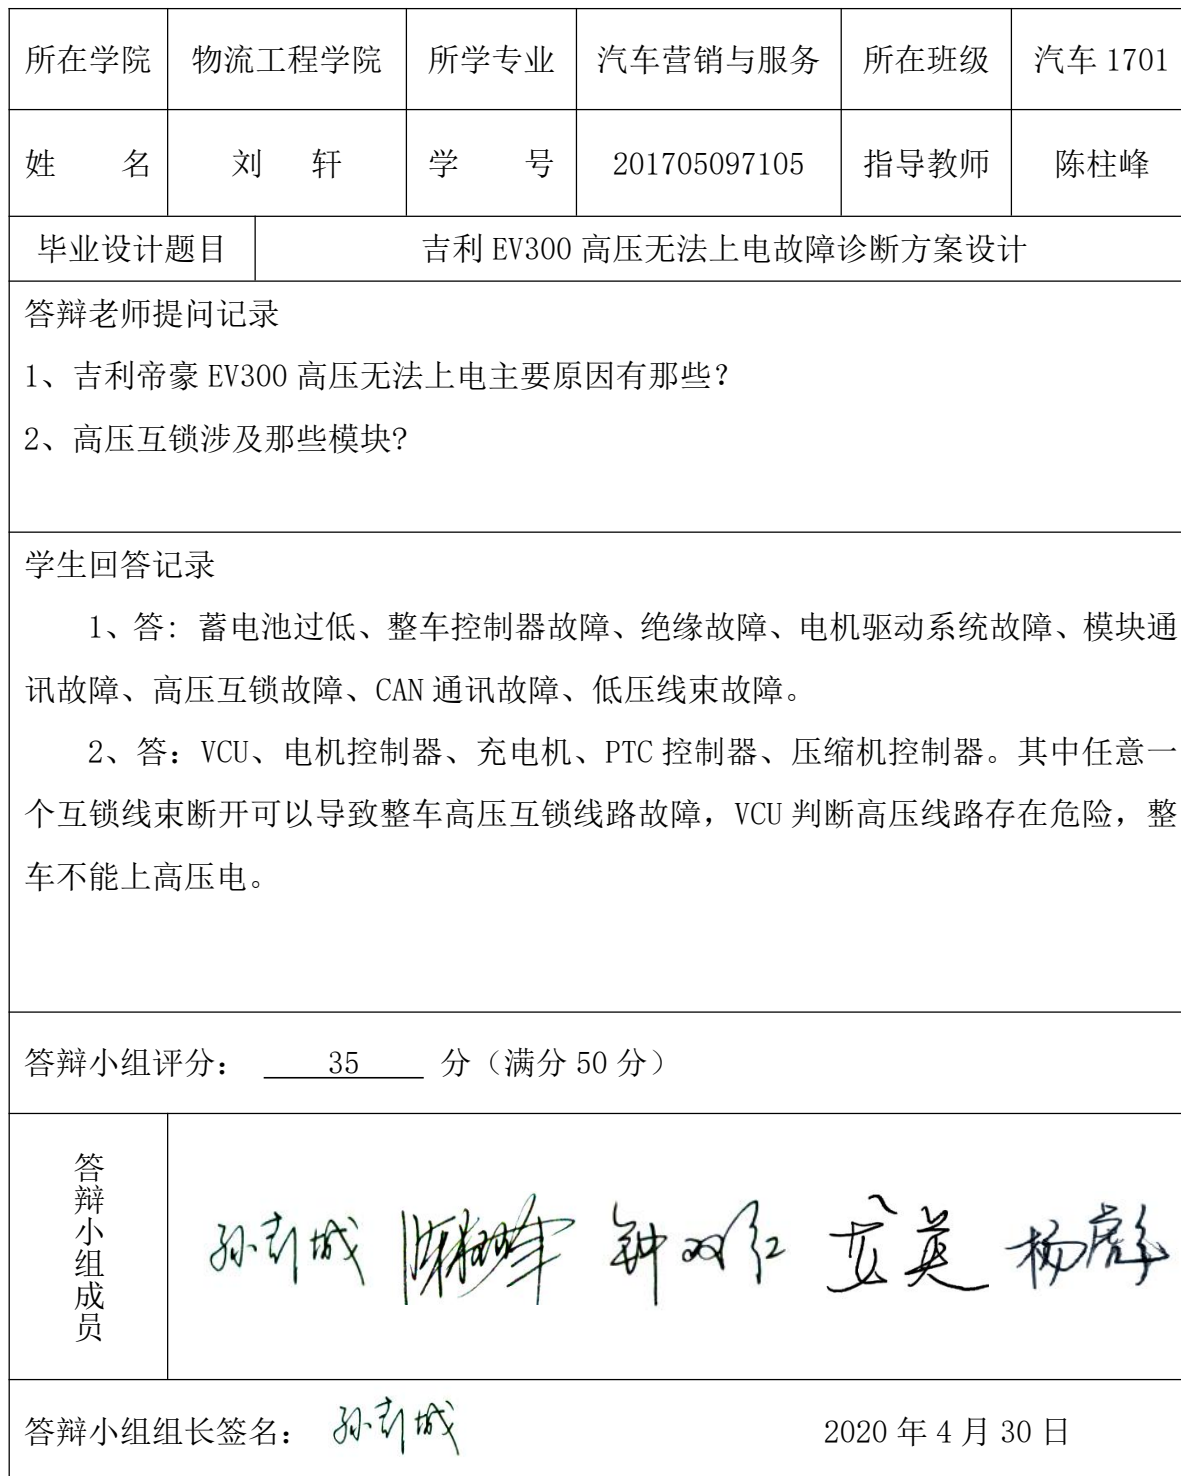 所在学院 物流工程学院 所学专业 汽车营销与服务 所在班级 汽车 1701
姓 名 刘 轩 学 号 201705097105 指导教师 陈柱峰
毕业设计题目 吉利 EV300 高压无法上电故障诊断方案设计
答辩老师提问记录
1、吉利帝豪 EV300 高压无法上电主要原因有那些?
2、高压互锁涉及那些模块?
学生回答记录
1、答: 蓄电池过低、整车控制器故障、绝缘故障、电机驱动系统故障、模块通
讯故障、高压互锁故障、CAN 通讯故障、低压线束故障。
2、答：VCU、电机控制器、充电机、PTC 控制器、压缩机控制器。其中任意一
个互锁线束断开可以导致整车高压互锁线路故障，VCU 判断高压线路存在危险，整
车不能上高压电。
答辩小组评分： 35 分（满分 50 分）
答辩小组成员 钟双红
答辩小组组长签名： 2020 年 4 月 30 日